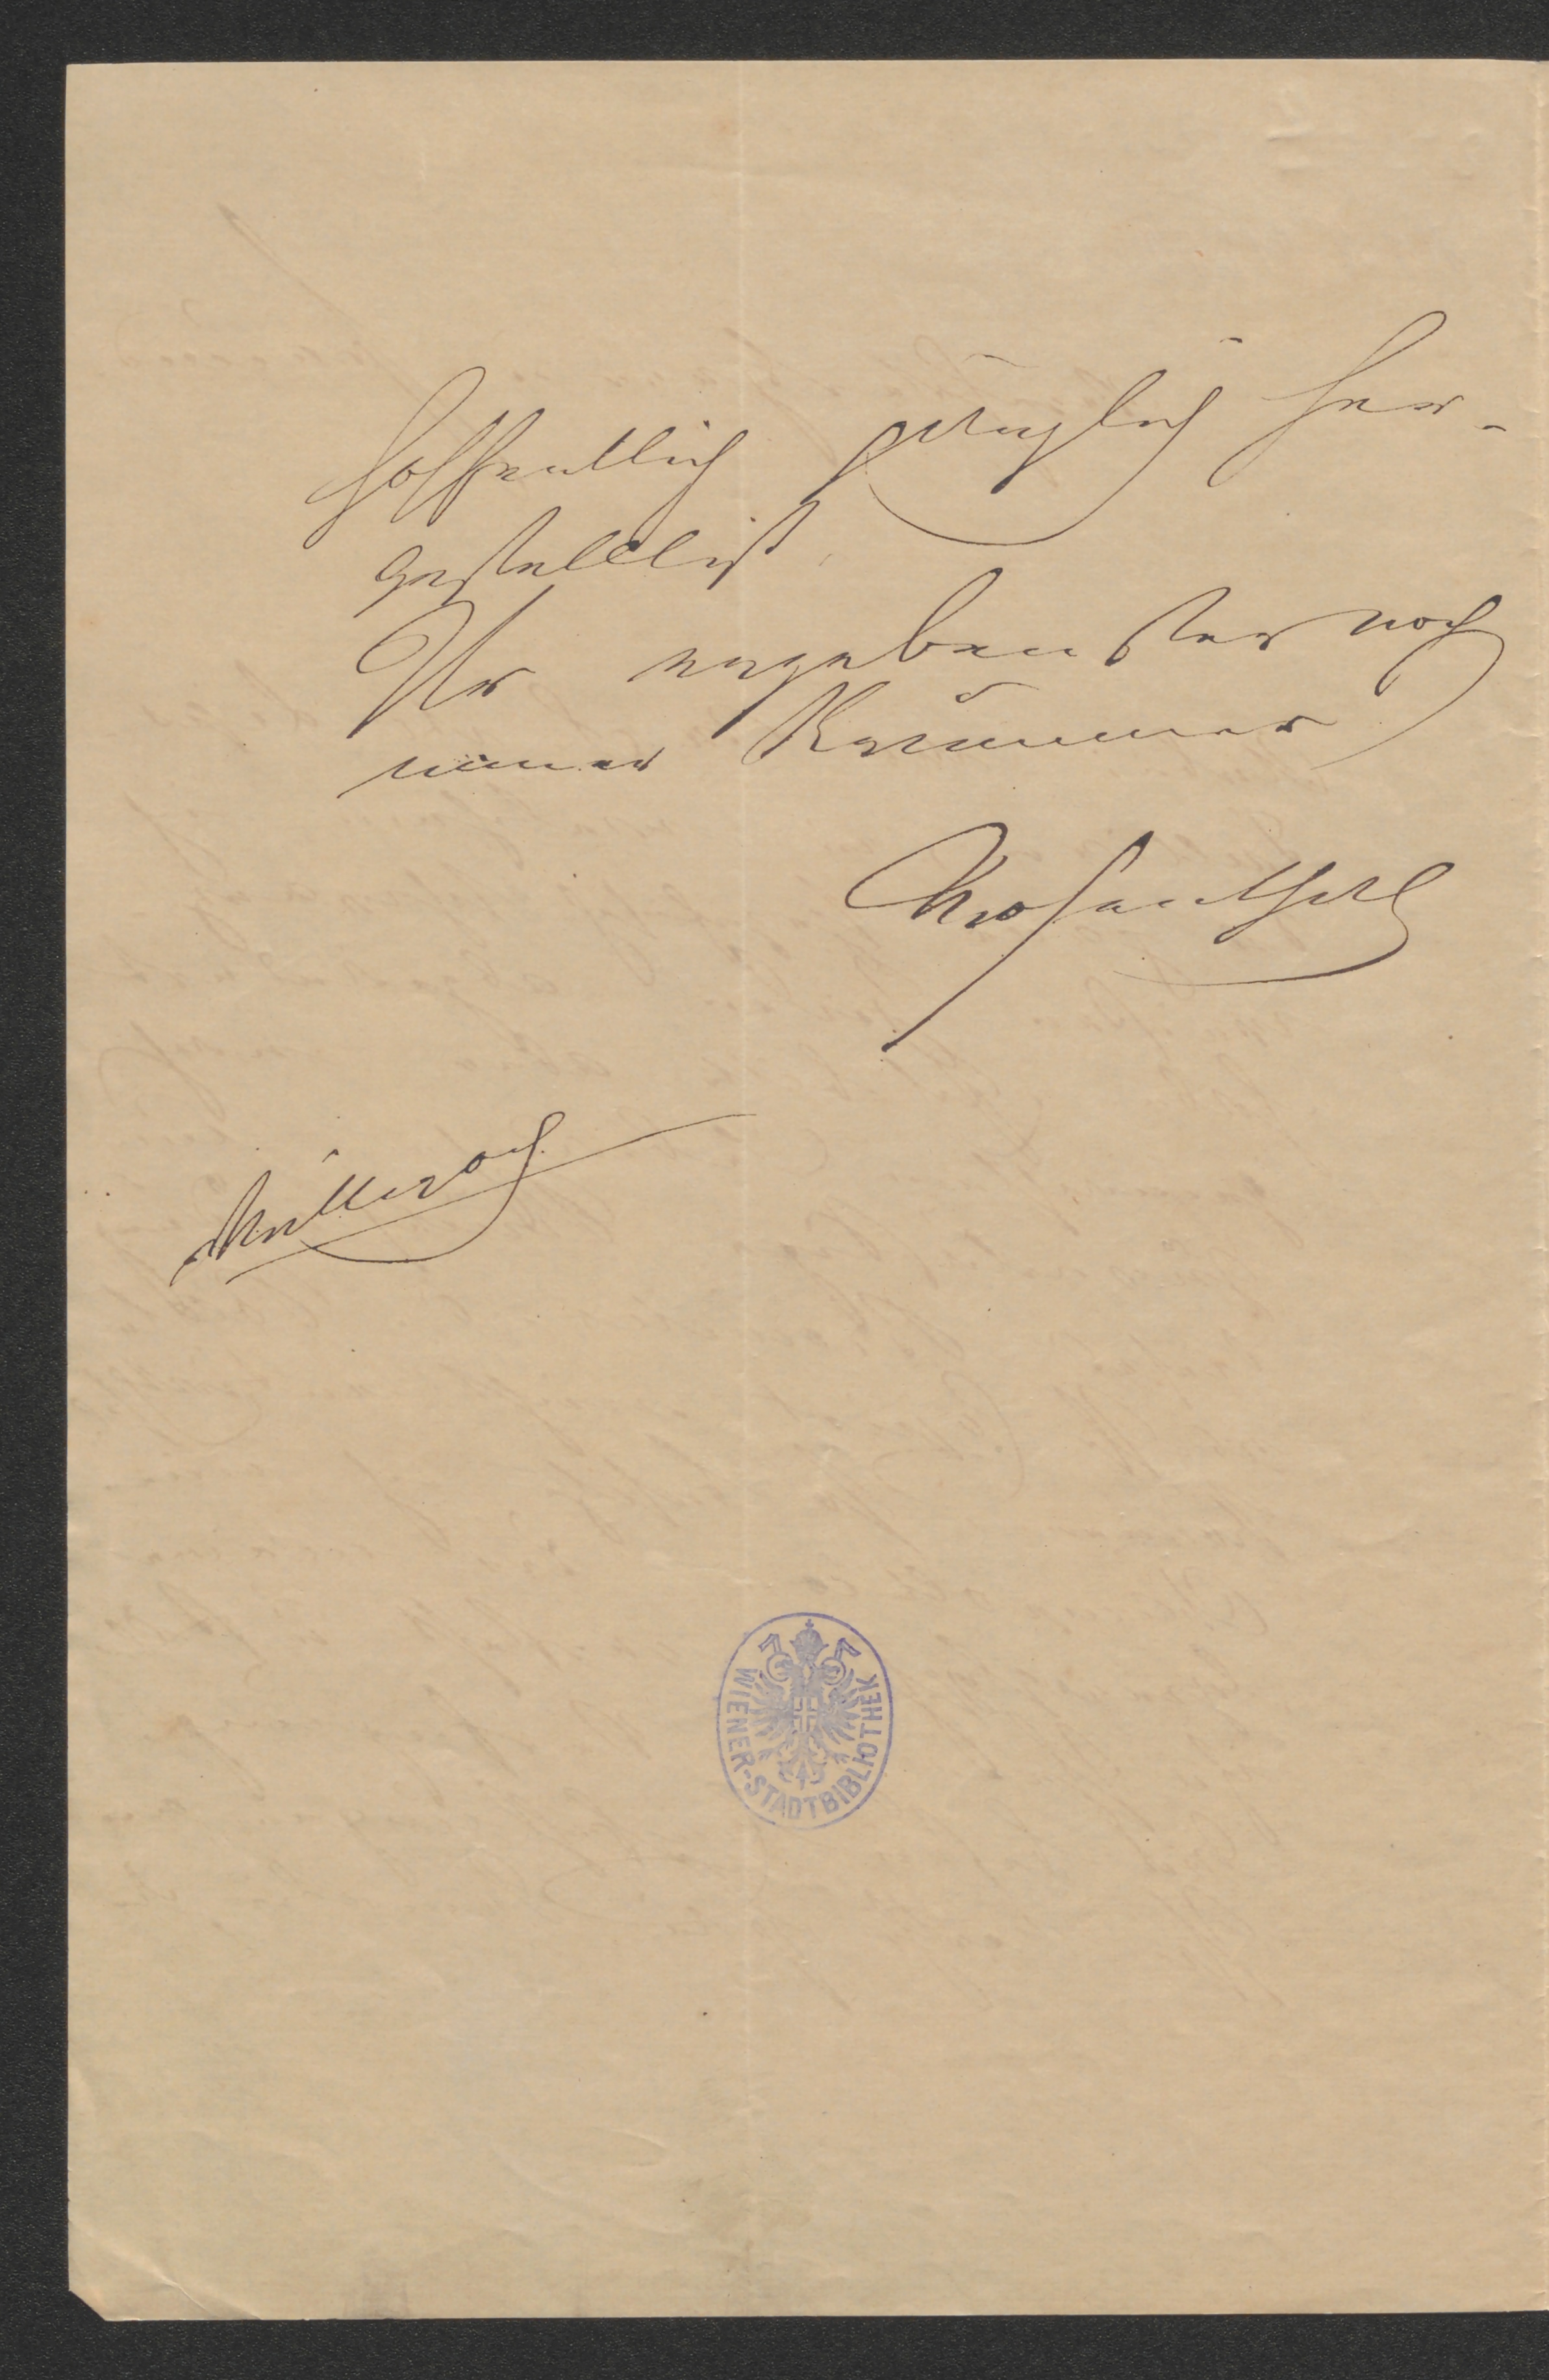 hoffentlich gänzlich her-
gestellt ist.
Ihr ergebenster noch
immer
Mosenthal
Mittwoch
WIENER-STADTBIBLIOTHEK